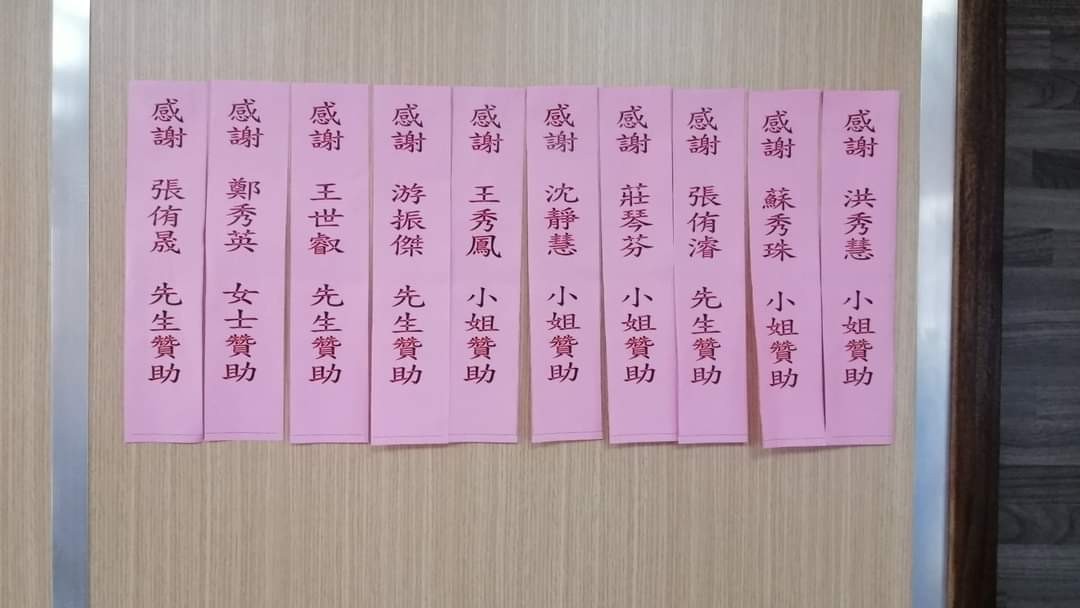 感謝 洪秀慧 小姐贊助
感謝 蘇秀珠 小姐贊助
感謝 張侑濬 先生贊助
感謝 莊琴芬 小姐贊助
感謝 沈靜慧 小姐贊助
感謝 王秀鳳 小姐贊助
感謝 游振傑 先生贊助
感謝 王世叡 先生贊助
感謝 鄭秀英 女士贊助
感謝 張侑晟 先生贊助